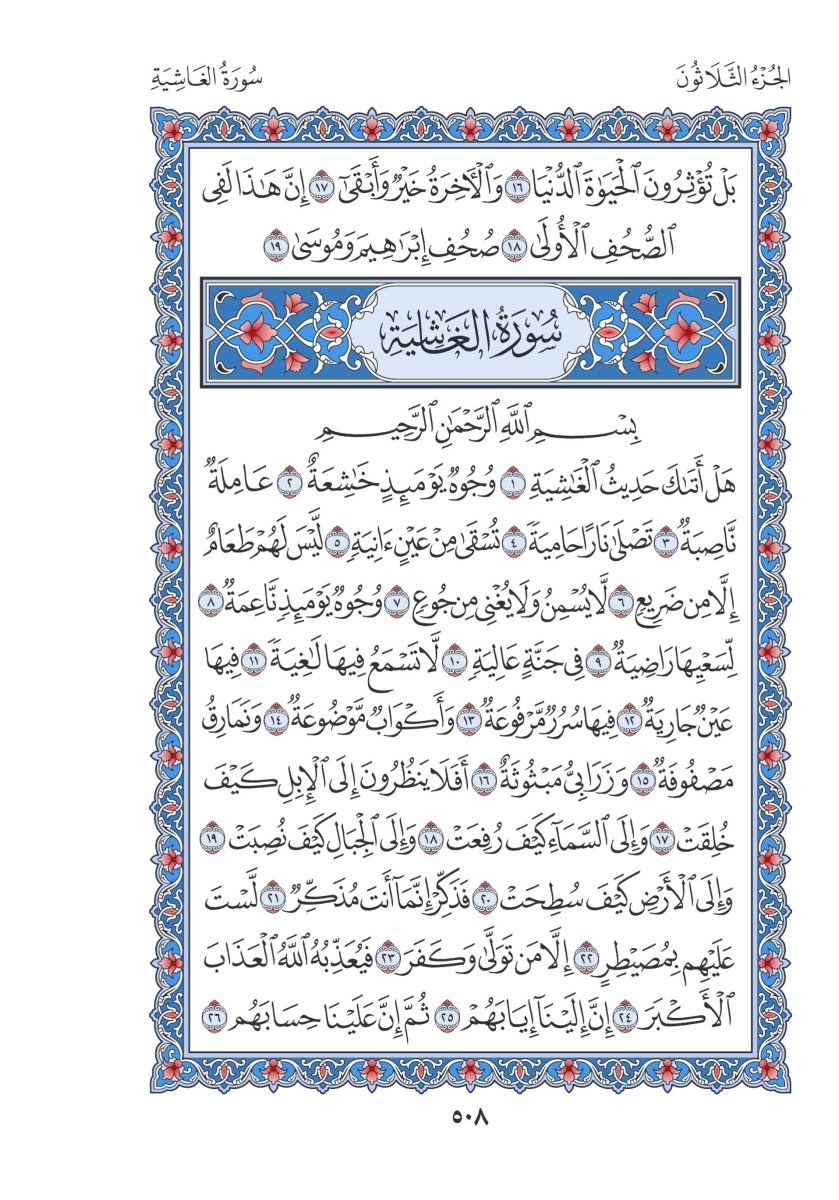 الجُزْءُ الثَّلَاثُونَ
سُورَةُ الغَاشِيَةِ
بَلْ تُؤْثِرُونَ ٱلْحَيَوٰةَ ٱلدُّنْيَا ١٦ وَٱلْأٓخِرَةُ خَيْرٌ وَأَبْقَىٰٓ ١٧ إِنَّ هَٰذَا لَفِى
ٱلصُّحُفِ ٱلْأُولَىٰ ١٨ صُحُفِ إِبْرَٰهِيمَ وَمُوسَىٰ ١٩
سُورَةُ الغَاشِيَةِ
بِسْمِ ٱللَّهِ ٱلرَّحْمَٰنِ ٱلرَّحِيمِ
هَلْ أَتَىٰكَ حَدِيثُ ٱلْغَٰشِيَةِ ١ وُجُوهٌ يَوْمَئِذٍ خَٰشِعَةٌ ٢ عَامِلَةٌ
نَّاصِبَةٌ ٣ تَصْلَىٰ نَارًا حَامِيَةً ٤ تُسْقَىٰ مِنْ عَيْنٍ ءَانِيَةٍ ٥ لَّيْسَ لَهُمْ طَعَامٌ
إِلَّا مِن ضَرِيعٍ ٦ لَّا يُسْمِنُ وَلَا يُغْنِى مِن جُوعٍ ٧ وُجُوهٌ يَوْمَئِذٍ نَّاعِمَةٌ ٨
لِّسَعْيِهَا رَاضِيَةٌ ٩ فِى جَنَّةٍ عَالِيَةٍ ١٠ لَّا تَسْمَعُ فِيهَا لَٰغِيَةً ١١ فِيهَا
عَيْنٌ جَارِيَةٌ ١٢ فِيهَا سُرُرٌ مَّرْفُوعَةٌ ١٣ وَأَكْوَابٌ مَّوْضُوعَةٌ ١٤ وَنَمَارِقُ
مَصْفُوفَةٌ ١٥ وَزَرَابِىُّ مَبْثُوثَةٌ ١٦ أَفَلَا يَنظُرُونَ إِلَى ٱلْإِبِلِ كَيْفَ
خُلِقَتْ ١٧ وَإِلَى ٱلسَّمَآءِ كَيْفَ رُفِعَتْ ١٨ وَإِلَى ٱلْجِبَالِ كَيْفَ نُصِبَتْ ١٩
وَإِلَى ٱلْأَرْضِ كَيْفَ سُطِحَتْ ٢٠ فَذَكِّرْ إِنَّمَآ أَنتَ مُذَكِّرٌ ٢١ لَّسْتَ
عَلَيْهِم بِمُصَيْطِرٍ ٢٢ إِلَّا مَن تَوَلَّىٰ وَكَفَرَ ٢٣ فَيُعَذِّبُهُ ٱللَّهُ ٱلْعَذَابَ
ٱلْأَكْبَرَ ٢٤ إِنَّ إِلَيْنَآ إِيَابَهُمْ ٢٥ ثُمَّ إِنَّ عَلَيْنَا حِسَابَهُم ٢٦
٥٠٨